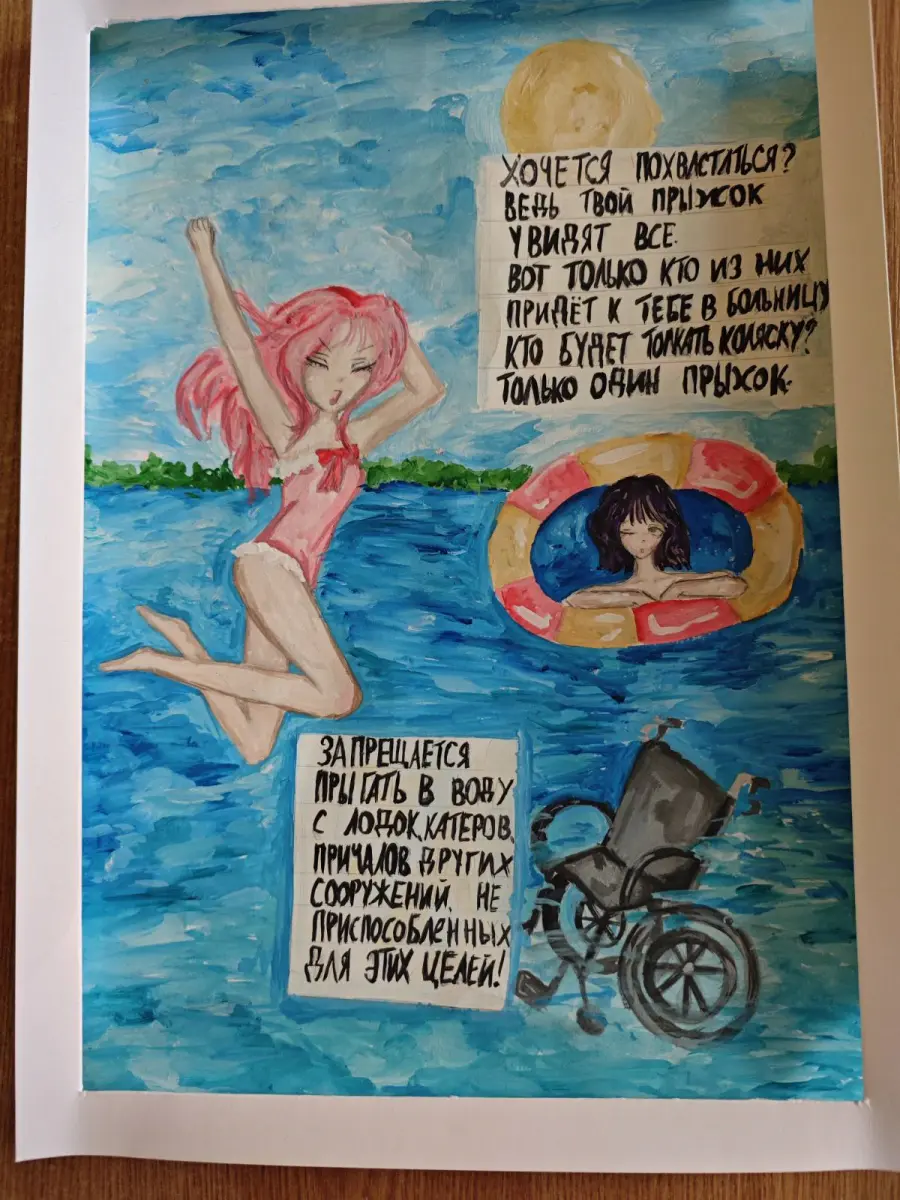 ХОЧЕТСЯ ПОХВАСТАТЬСЯ?
ВЕДЬ ТВОЙ ПРЫЖОК
УВИДЯТ ВСЕ.
ВОТ ТОЛЬКО КТО ИЗ НИХ
ПРИДЁТ К ТЕБЕ В БОЛЬНИЦУ
КТО БУДЕТ ТОЛКАТЬ КОЛЯСКУ?
ТОЛЬКО ОДИН ПРЫЖОК.
ЗАПРЕЩАЕТСЯ
ПРЫГАТЬ В ВОДУ
С ЛОДОК, КАТЕРОВ,
ПРИЧАЛОВ ДРУГИХ
СООРУЖЕНИЙ, НЕ
ПРИСПОСОБЛЕННЫХ
ДЛЯ ЭТИХ ЦЕЛЕЙ!